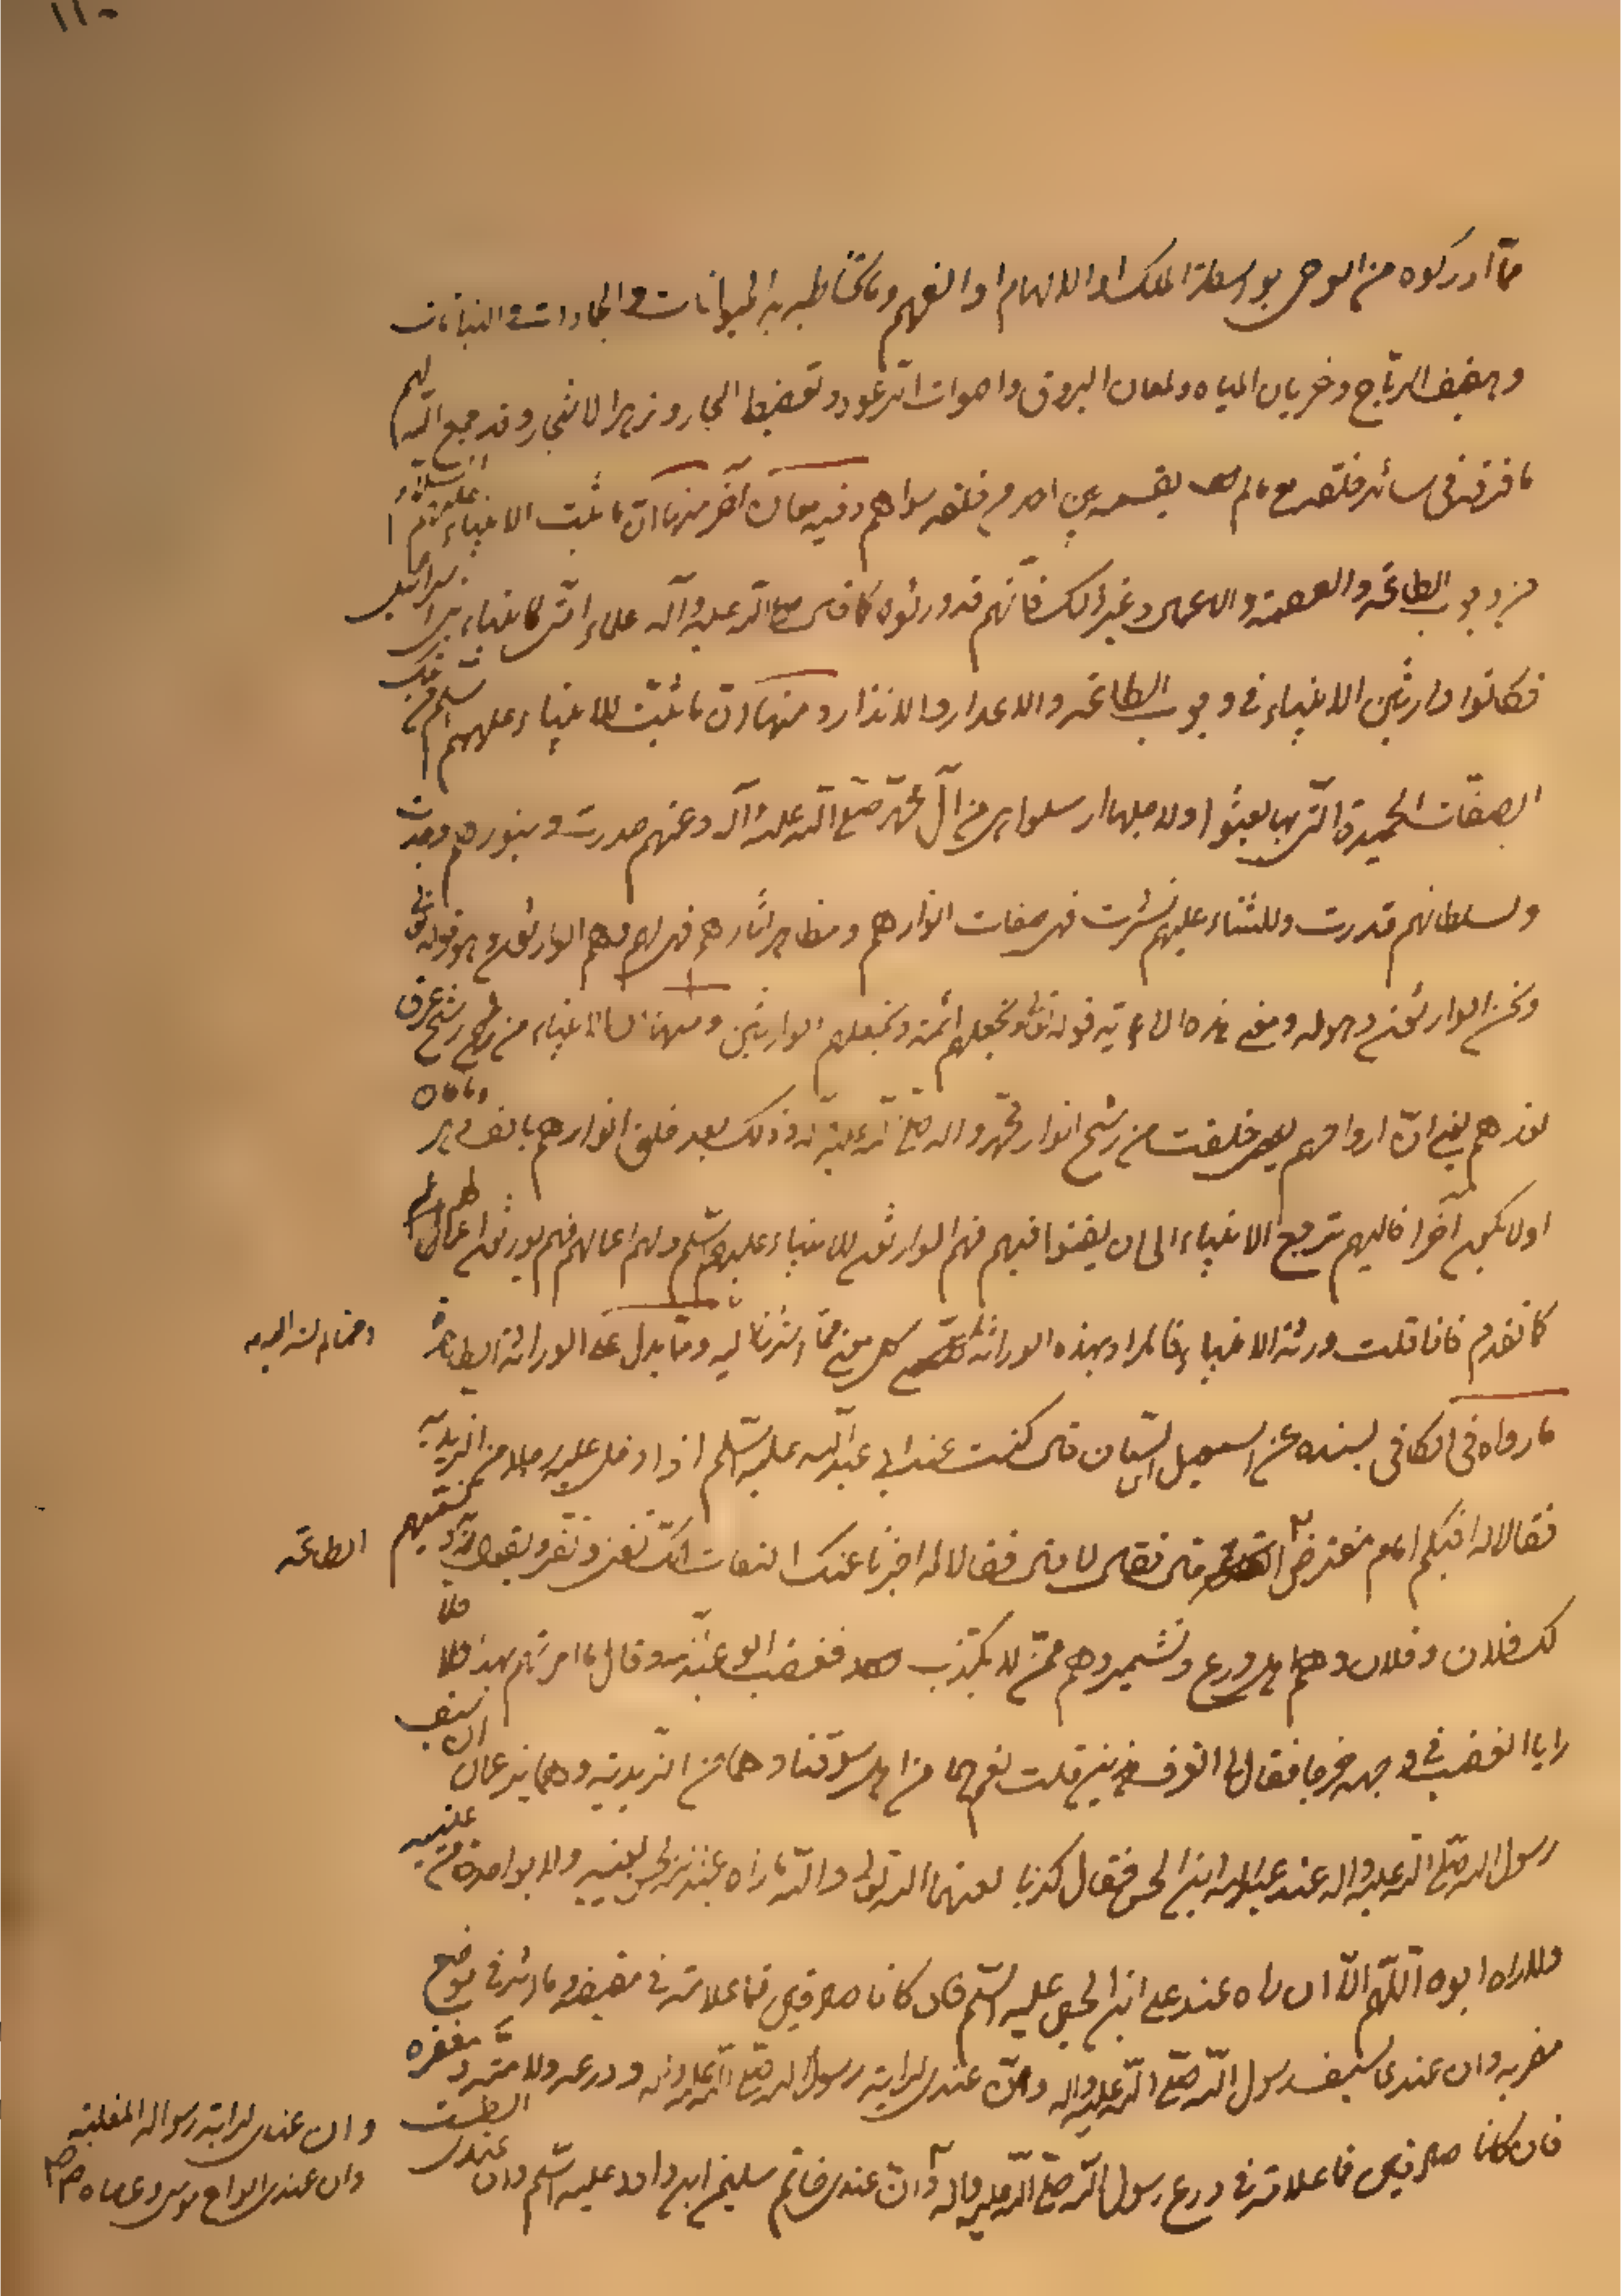 ١١٠
مما ادركوه من الوحى بواسطة الملك او الالهام او الفهم وما تخاطبهم به الحيوانات والجمادات والنباتات
وهفيف الرياح وجريان المياه ولمعان البروق واصوات الرعود و البحار و الاشجار وقد جمع الله لهم
ما فرقه فى سائر خلقه مع ما لم يقسمه بين احد من خلقه سواهم وفيه معان آخر منها ان ما ثبت للانبياء عليهم السلام
من وجوب الطاعة والعصمة و وغير ذلك فانهم قد ورثوه كما قال صلى الله عليه وآله علماء امتى كانبياء بنى اسرائيل
فكانوا وارثين الانبياء فى وجوب الطاعة والاعذار والانذار ومنها ان ما ثبت للانبياء عليهم السلم من تلك
الصفات الحميدة التى بها بعثوا ولاجلها ارسلوا هى من آل محمد صلى الله عليه وآله وعنهم صدرت وبنورهم وجدت
ولسلطانهم قدرت وللثناء عليهم نشرت فهى صفات انوارهم ومظاهر اثارهم فهى لهم وهم الوارثون وهو قوله تعالى
ونحن الوارثون و ومعنى هذه الاية قوله تعالى ونجعلهم ائمة ونجعلهم الوارثين ومنها ان الانبياء من رشح عرق
نورهم يعنى ان ارواحهم خلقت من رشح انوار محمد واله صلى الله عليه واله وذلك بعد خلق انوارهم بالف دهر وما كان
اولا يكون آخرا فاليهم ترجع الانبياء الى ان يفنوا فيهم فهم الوارثون للانبياء عليهم السلم ولهم اعمالهم فهم يورثون اعمالهم لهم
كما تقدم فاذا قلت ورثة الانبياء فالمراد بهذه الوراثة كل معنى مما اشرنا اليه ومما يدل على الوراثة الظاهرة
ومما لم نشر اليه
ما رواه فى الكافى بسنده عن سعيد السمان قال كنت عند ابى عبد الله عليه السلم اذ دخل عليه رجلان من الزيدية
فقالا له افيكم امام مفترض الطاعة قال فقال لا قال فقالا له اخبرنا عنك الثقات انك تفتى وتقر وتقول به ونسميهم
لك فلان وفلان وهم اهل ورع وتشمير وهم ممن لا يكذب فغضب ابو عبد الله وقال ما امرتهم بهذا فلما
رايا الغضب فى وجهه خرجا فقال لى اتعرف هذين قلت نعم هما من اهل سوقنا وهما من الزيدية وهما يزعمان ان سيف
رسول الله صلى الله عليه واله عند عبد الله ابن الحسن فقال كذبا لعنهما الله والله ما راه عبد الله بن الحسن بعينيه ولا بواحدة من عينيه
ولا راه ابوه اللهم الا ان يكون راه عند على ابن الحسين عليه السلم فان كانا صادقين فما علامة فى مقبضه وما اثر فى موضع
مضربه وان عندى لسيف رسول الله صلى الله عليه واله وان عندى لراية رسول الله صلى الله عليه واله ودرعه ولامته ومغفره
فان كانا صادقين فما علامة فى درع رسول الله صلى الله عليه واله وان عندى خاتم سليمن ابن داود عليه السلم وان عندى الطست
وان عندى لراية رسول الله المغلبة
وان عندى الواح موسى وعصاه